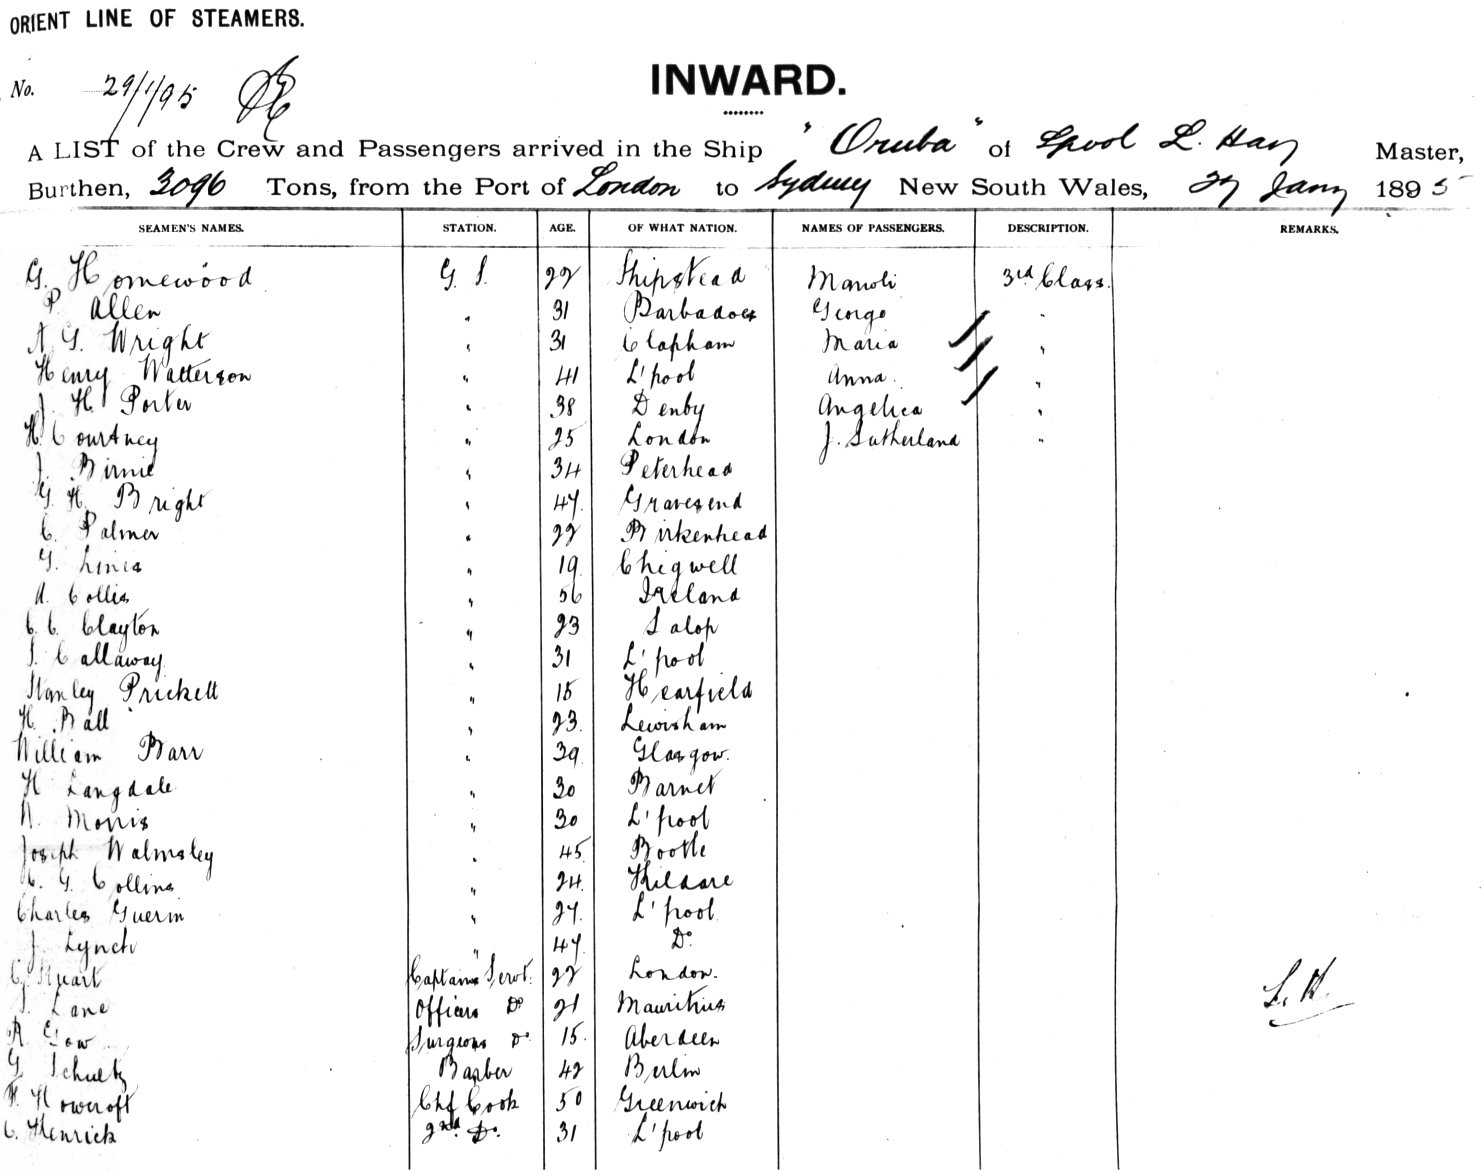 ORIENT LINE OF STEAMERS.
No. 29/1/95
INWARD.
A LIST of the Crew and Passengers arrived in the Ship "Oruba" of Lpool L. Hay Master,
Burthen, 3096 Tons, from the Port of London to Sydney New South Wales, 27 Jany 1895
SEAMEN'S NAMES. STATION. AGE. OF WHAT NATION. NAMES OF PASSENGERS. DESCRIPTION. REMARKS.
G. Homewood G. S. 22 Shipstead Manoli 3rd Class.
P. Allen " 31 Barbadoes George "
A G. Wright " 31 Clapham Maria "
Henry Watterson " 41 L'pool Anna. "
J. H. Porter " 38 Denby Angelica "
H. Courtney " 25 London J. Sutherland "
J. Birnie " 34 Peterhead
G. H. Bright " 47 Gravesend
C. Palmer " 22 Birkenhead
G. Lines " 19 Chigwell
A. Collis " 56 Ireland
C. C. Clayton " 23 Salop
S. Callaway " 31 L'pool
Stanley Prickett " 15 Hearfield
H. Ball " 23 Lewisham
William Barr " 39 Glasgow.
H Langdale " 30 Barnet
A. Morris " 30 L'pool
Joseph Walmsley " 45 Bootle
C. G. Collins " 24 Kildare
Charles Guerin " 27 L'pool
J. Lynch " 47 Do
C. Stuart Captains Servt. 22 London.
J. Lane Officers Do 21 Mauritius L. H.
A. Gow Surgeons Do 15 Aberdeen
G Schultz Barber 42 Berlin
H Howcroft Chf Cook 50 Greenwich
C. Henrick 2nd Do. 31 L'pool